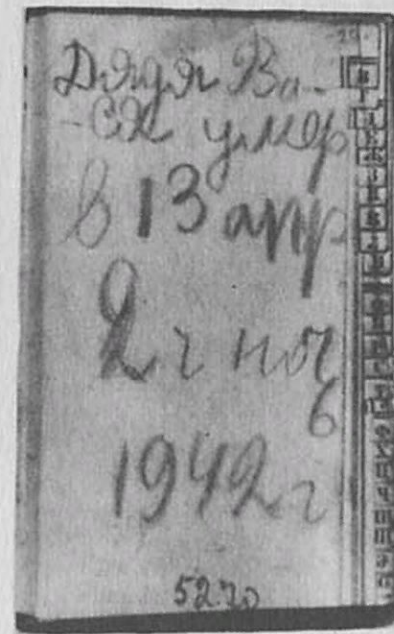 Дядя Ва-
-ся умер
в 13 апр
2 ч ноч
б
1942 г
5270